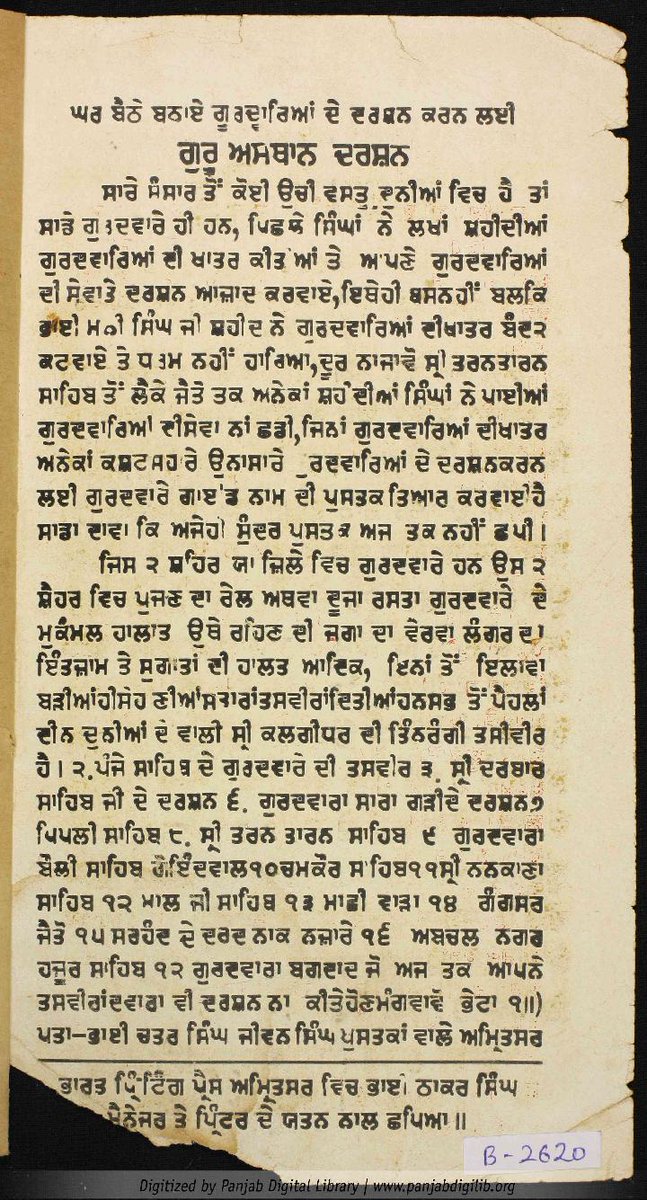 ਘਰ ਬੈਠੇ ਬਨਾਏ ਗੁਰਦ੍ਵਾਰਿਆਂ ਦੇ ਦਰਸ਼ਨ ਕਰਨ ਲਈ
ਗੁਰੂ ਅਸਥਾਨ ਦਰਸ਼ਨ
ਸਾਰੇ ਸੰਸਾਰ ਤੋਂ ਕੋਈ ਉਚੀ ਵਸਤੂ ਦੁਨੀਆਂ ਵਿਚ ਹੈ ਤਾਂ
ਸਾਡੇ ਗੁਰਦਵਾਰੇ ਹੀ ਹਨ, ਪਿਛਲੇ ਸਿੰਘਾਂ ਨੇ ਲਖਾਂ ਸ਼ਹੀਦੀਆਂ
ਗੁਰਦਵਾਰਿਆਂ ਦੀ ਖਾਤਰ ਕੀਤੀਆਂ ਤੇ ਆਪਣੇ ਗੁਰਦਵਾਰਿਆਂ
ਦੀ ਸੇਵਾਤੇ ਦਰਸ਼ਨ ਆਜ਼ਾਦ ਕਰਵਾਏ,ਇਥੇਹੀ ਬਸਨਹੀਂ ਬਲਕਿ
ਭਾਈ ਮਨੀ ਸਿੰਘ ਜੀ ਸ਼ਹੀਦ ਨੇ ਗੁਰਦਵਾਰਿਆਂ ਦੀਖਾਤਰ ਬੰਦ੨
ਕਟਵਾਏ ਤੇ ਧਰਮ ਨਹੀਂ ਹਾਰਿਆ,ਦੂਰ ਨਾਜਾਵੋ ਸ੍ਰੀ ਤਰਨਤਾਰਨ
ਸਾਹਿਬ ਤੋਂ ਲੈਕੇ ਜੈਤੋ ਤਕ ਅਨੇਕਾਂ ਸ਼ਹੀਦੀਆਂ ਸਿੰਘਾਂ ਨੇ ਪਾਈਆਂ
ਗੁਰਦਵਾਰਿਆਂ ਦੀਸੇਵਾ ਨਾਂ ਛਡੀ,ਜਿਨਾਂ ਗੁਰਦਵਾਰਿਆਂ ਦੀਖਾਤਰ
ਅਨੇਕਾਂ ਕਸ਼ਟਸਹਾਰੇ ਉਨਾਸਾਰੇ ਗੁਰਦਵਾਰਿਆਂ ਦੇ ਦਰਸ਼ਨਕਰਨ
ਲਈ ਗੁਰਦਵਾਰੇ ਗਾਈਡ ਨਾਮ ਦੀ ਪੁਸਤਕ ਤਿਆਰ ਕਰਵਾਈਹੈ
ਸਾਡਾ ਦਾਵਾ ਕਿ ਅਜੇਹੀ ਸੁੰਦਰ ਪੁਸਤਕ ਅਜ ਤਕ ਨਹੀਂ ਛਪੀ।
ਜਿਸ ੨ ਸ਼ਹਿਰ ਯਾ ਜ਼ਿਲੇ ਵਿਚ ਗੁਰਦਵਾਰੇ ਹਨ ਉਸ ੨
ਸ਼ੈਹਰ ਵਿਚ ਪੁਜਣ ਦਾ ਰੇਲ ਅਥਵਾ ਦੂਜਾ ਰਸਤਾ ਗੁਰਦਵਾਰੇ ਦੇ
ਮੁਕੰਮਲ ਹਾਲਾਤ ਉਥੇ ਰਹਿਣ ਦੀ ਜਗਾ ਦਾ ਵੇਰਵਾ ਲੰਗਰ ਦਾ
ਇੰਤਜ਼ਾਮ ਤੇ ਸੁਗਾਤਾਂ ਦੀ ਹਾਲਤ ਆਦਿਕ, ਇਨਾਂ ਤੋਂ ਇਲਾਵਾ
ਬੜੀਆਂਹੀਸੋਹਣੀਆਂਸਤਾਰਾਂਤਸਵੀਰਾਂਦਿਤੀਆਂਹਨਸਭ ਤੋਂ ਪੈਹਲਾਂ
ਦੀਨ ਦੁਨੀਆਂ ਦੇ ਵਾਲੀ ਸ੍ਰੀ ਕਲਗੀਧਰ ਦੀ ਤਿੰਨਰੰਗੀ ਤਸੀਵੀਰ
ਹੈ। ੨.ਪੰਜੇ ਸਾਹਿਬ ਦੇ ਗੁਰਦਵਾਰੇ ਦੀ ਤਸਵੀਰ ੩. ਸ੍ਰੀ ਦਰਬਾਰ
ਸਾਹਿਬ ਜੀ ਦੇ ਦਰਸ਼ਨ ੬. ਗੁਰਦਵਾਰਾ ਸਾਰਾ ਗੜੀਦੇ ਦਰਸ਼ਨ੭
ਪਿਪਲੀ ਸਾਹਿਬ ੮. ਸ੍ਰੀ ਤਰਨ ਤਾਰਨ ਸਾਹਿਬ ੯ ਗੁਰਦਵਾਰਾ
ਬੌਲੀ ਸਾਹਿਬ ਗੋਇੰਦਵਾਲ੧੦ਚਮਕੌਰ ਸਾਹਿਬ੧੧ਸ੍ਰੀ ਨਨਕਾਣਾ
ਸਾਹਿਬ ੧੨ ਮਾਲ ਜੀ ਸਾਹਿਬ ੧੩ ਮਾਛੀ ਵਾੜਾ ੧੪ ਗੰਗਸਰ
ਜੈਤੋ ੧੫ ਸਰਹੰਦ ਦੇ ਦਰਦ ਨਾਕ ਨਜ਼ਾਰੇ ੧੬ ਅਬਚਲ ਨਗਰ
ਹਜ਼ੂਰ ਸਾਹਿਬ ੧੨ ਗੁਰਦਵਾਰਾ ਬਗਦਾਦ ਜੋ ਅਜ ਤਕ ਆਪਨੇ
ਤਸਵੀਰਾਂਦਵਾਰਾ ਵੀ ਦਰਸ਼ਨ ਨਾ ਕੀਤੇਹੋਣਮੰਗਵਾਵੋ ਭੇਟਾ ੧॥)
ਪਤਾ—ਭਾਈ ਚਤਰ ਸਿੰਘ ਜੀਵਨ ਸਿੰਘ ਪੁਸਤਕਾਂ ਵਾਲੇ ਅਮ੍ਰਿਤਸਰ
ਭਾਰਤ ਪ੍ਰਿੰਟਿੰਗ ਪ੍ਰੈਸ ਅਮ੍ਰਿਤਸਰ ਵਿਚ ਭਾਈ ਠਾਕਰ ਸਿੰਘ
ਮੈਨੇਜਰ ਤੇ ਪ੍ਰਿੰਟਰ ਦੇ ਯਤਨ ਨਾਲ ਛਪਿਆ॥
B-2620
Digitized by Panjab Digital Library | www.panjabdigilib.org